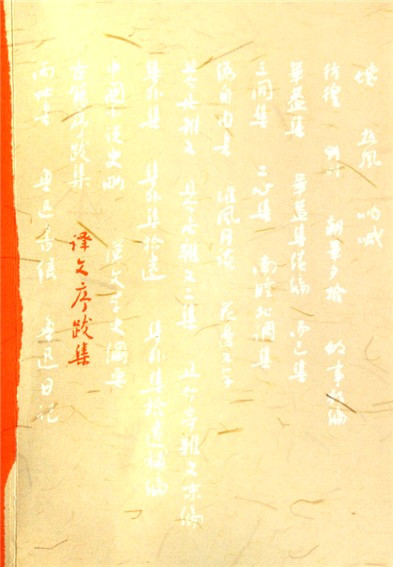 墳 热风 呐喊
彷徨 野草 朝華夕拾 故事新编
華盖集 華盖集续编 而已集
三闲集 二心集 南腔北调集
伪自由书 准风月谈 花边文学
且介亭杂文 且介亭杂文二集 且介亭杂文末编
集外集 集外集拾遗 集外集拾遗补编
中国小说史略 汉文学史纲要
古籍序跋集 译文序跋集
两地书 鲁迅书信 鲁迅日记